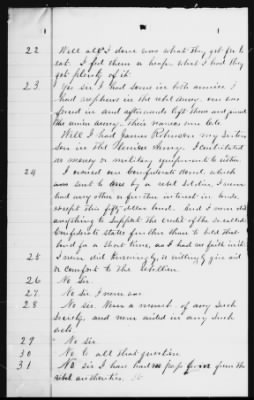 22 Well all I done was what they got to
eat. I fed them a heap. what I had they
got plenty of it
23 Yes sir I had some in both armies I
had nephews in the rebel Army. one was
forced in and afterwards left them and joined
the union army. Their names are Cole.
Well I had James Robinson my sisters
son in the Union Army. I contributed
no money or military equipment to either
24 I owned one Confederate bond. which
was sent to me by a rebel soldier, I never
had any other or further interest in bonds
except this fifty dollar bond. And I never did
anything to support the credit of the so called
Confederate states further than to hold that
bond for a short time, as I had no faith in it
25 I never did knowingly, or willingly give aid
or comfort to the rebellion
26 No Sir.
27 No Sir I never was
28 No sir. Never a member of any such
society, and never aided in any such
acts
29 No sir
30 No to all that question
31 No sir I have had no pass from the
rebel authorities.